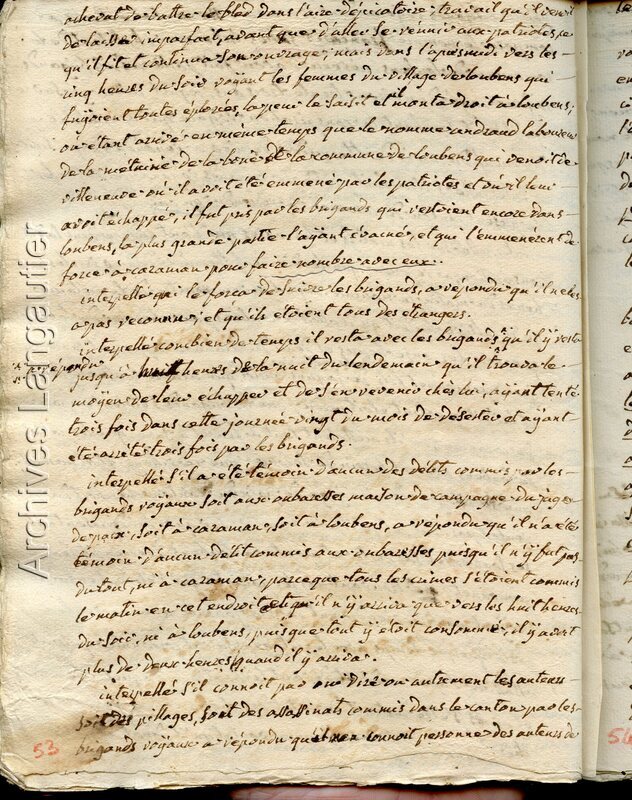 acheval de battre le bled dans l'aire dépicatoire, travail qu'il venoit
de laisser imparfait, avant que d'aller se reunir aux patriotes,
qu'il fit et continua son ouvrage; mais dans l'apresmidi vers les
cinq heures du soir voyant les femmes du village de loubens qui
fuyoient toutes éplorées, la peur le saisit et il monta droit à loubens;
ou étant arrivé en même temps que le nommé andraud laboureur
de la métairie de la bone de la commune de loubens qui venoit de
villeneuve où il avoit été emmené par les patriotes et d'où il leur
avoit échappé, il fut pris par les brigands qui restoient encore dans
loubens, la plus grande partie l'ayant évacué, et qui l'emmenérent de
force à caraman pour faire nombre avec eux.
interpellé qui le força de suivre les brigands, a répondu qu'il ne les
a pas reconnu, et qu'ils étoient tous des étrangers.
interpellé combien de temps il resta avec les brigands qu'il y resta
a répondu
jusqu'à huit heures de la nuit du lendemain qu'il trouva le
moyen de leur échapper et de s'en revenir chès lui, ayant tenté
trois fois dans cette journée vingt du mois de déserter et ayant
été arrêté trois fois par les brigands.
interpellé s'il a été témoin d'aucun des délits commis par les
brigands royaux soit aux ombaresses maison de campagne du juge
de paix, soit à caraman, soit à loubens, a répondu qu'il n'a été
témoin d'aucun délit commis aux ombaresses puisqu'il n'y fut pas
du tout, ni à caraman, parceque tous les crimes s'étoient commis
le matin en cet endroit et qu'il n'y arriva que vers les huit heures
du soir, ni à loubens, puisque tout y étoit consommé, il y avoit
plus de deux heures quand il y arriva.
interpellé s'il connoit par oui dire ou autrement les auteurs
soit des pillages, soit des assassinats commis dans le canton par les
brigands royaux a répondu qu'il n'en connoit personne des auteurs de
53
54
Archives Langautier